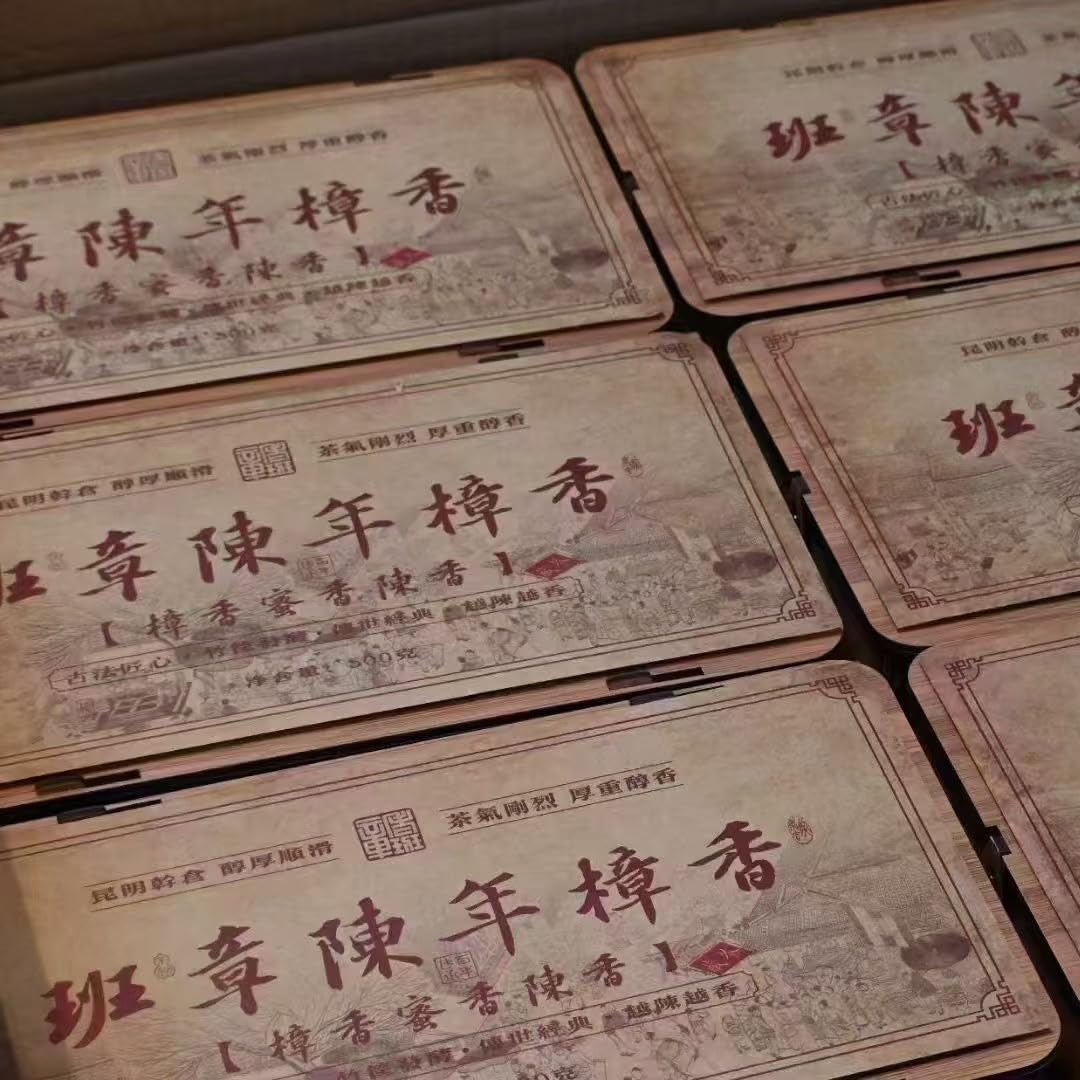 醇厚順滑 茶氣剛烈 厚重醇香
章陳年樟香
【樟香蜜香陳香】
傳世經典·越陳越香
净含量:500克
昆明幹倉 醇厚順滑
班章陳年
【樟香蜜
古法匠心
昆明幹倉 醇厚順滑 茶氣剛烈 厚重醇香
班章陳年樟香
【樟香蜜香陳香】
古法匠心·竹筐發酵·傳世經典·越陳越香
净含量:500克
昆明幹倉 醇
班章
昆明幹倉 醇厚順滑 茶氣剛烈 厚重醇香
班章陳年樟香
【樟香蜜香陳香】
竹筐發酵·傳世經典·越陳越香